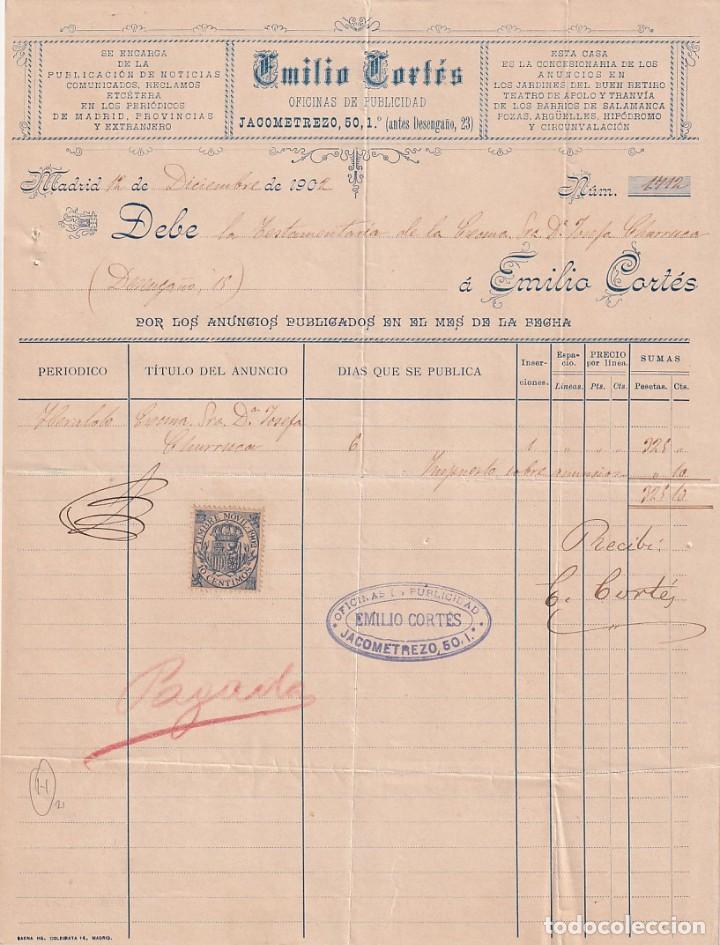 SE ENCARGA
DE LA
PUBLICACIÓN DE NOTICIAS
COMUNICADOS, RECLAMOS
ETCÉTERA
EN LOS PERIÓDICOS
DE MADRID, PROVINCIAS
Y EXTRANJERO
Emilio Cortés
OFICINAS DE PUBLICIDAD
JACOMETREZO, 50, 1.º (antes Desengaño, 23)
ESTA CASA
ES LA CONCESIONARIA DE LOS
ANUNCIOS EN
LOS JARDINES DEL BUEN RETIRO
TEATRO DE APOLO Y TRANVÍA
DE LOS BARRIOS DE SALAMANCA
POZAS, ARGÜELLES, HIPÓDROMO
Y CIRCUNVALACIÓN
Madrid 12 de Diciembre de 1902
Núm. 1712
Debe la Testamentaria de la Excma. Sra. Dª. Josefa Churruca
(Desengaño, 18) á Emilio Cortés
POR LOS ANUNCIOS PUBLICADOS EN EL MES DE LA FECHA
PERIODICO TÍTULO DEL ANUNCIO DIAS QUE SE PUBLICA Inser-ciones. Espacio. Líneas. PRECIO por línea. Pts. Cts. SUMAS Pesetas. Cts.
Heraldo Excma. Sra. Dª. Josefa
Churruca 6 1 " " " 325 "
Impuesto sobre anuncios " 10
325 10
TIMBRE MOVIL 1902
10 CENTIMOS
Recibí:
E. Cortés
OFICINAS DE PUBLICIDAD
EMILIO CORTÉS
JACOMETREZO, 50, 1.º
Pagada
H
2
BAENA HS. COLEGIATA 16, MADRID.
todocoleccion